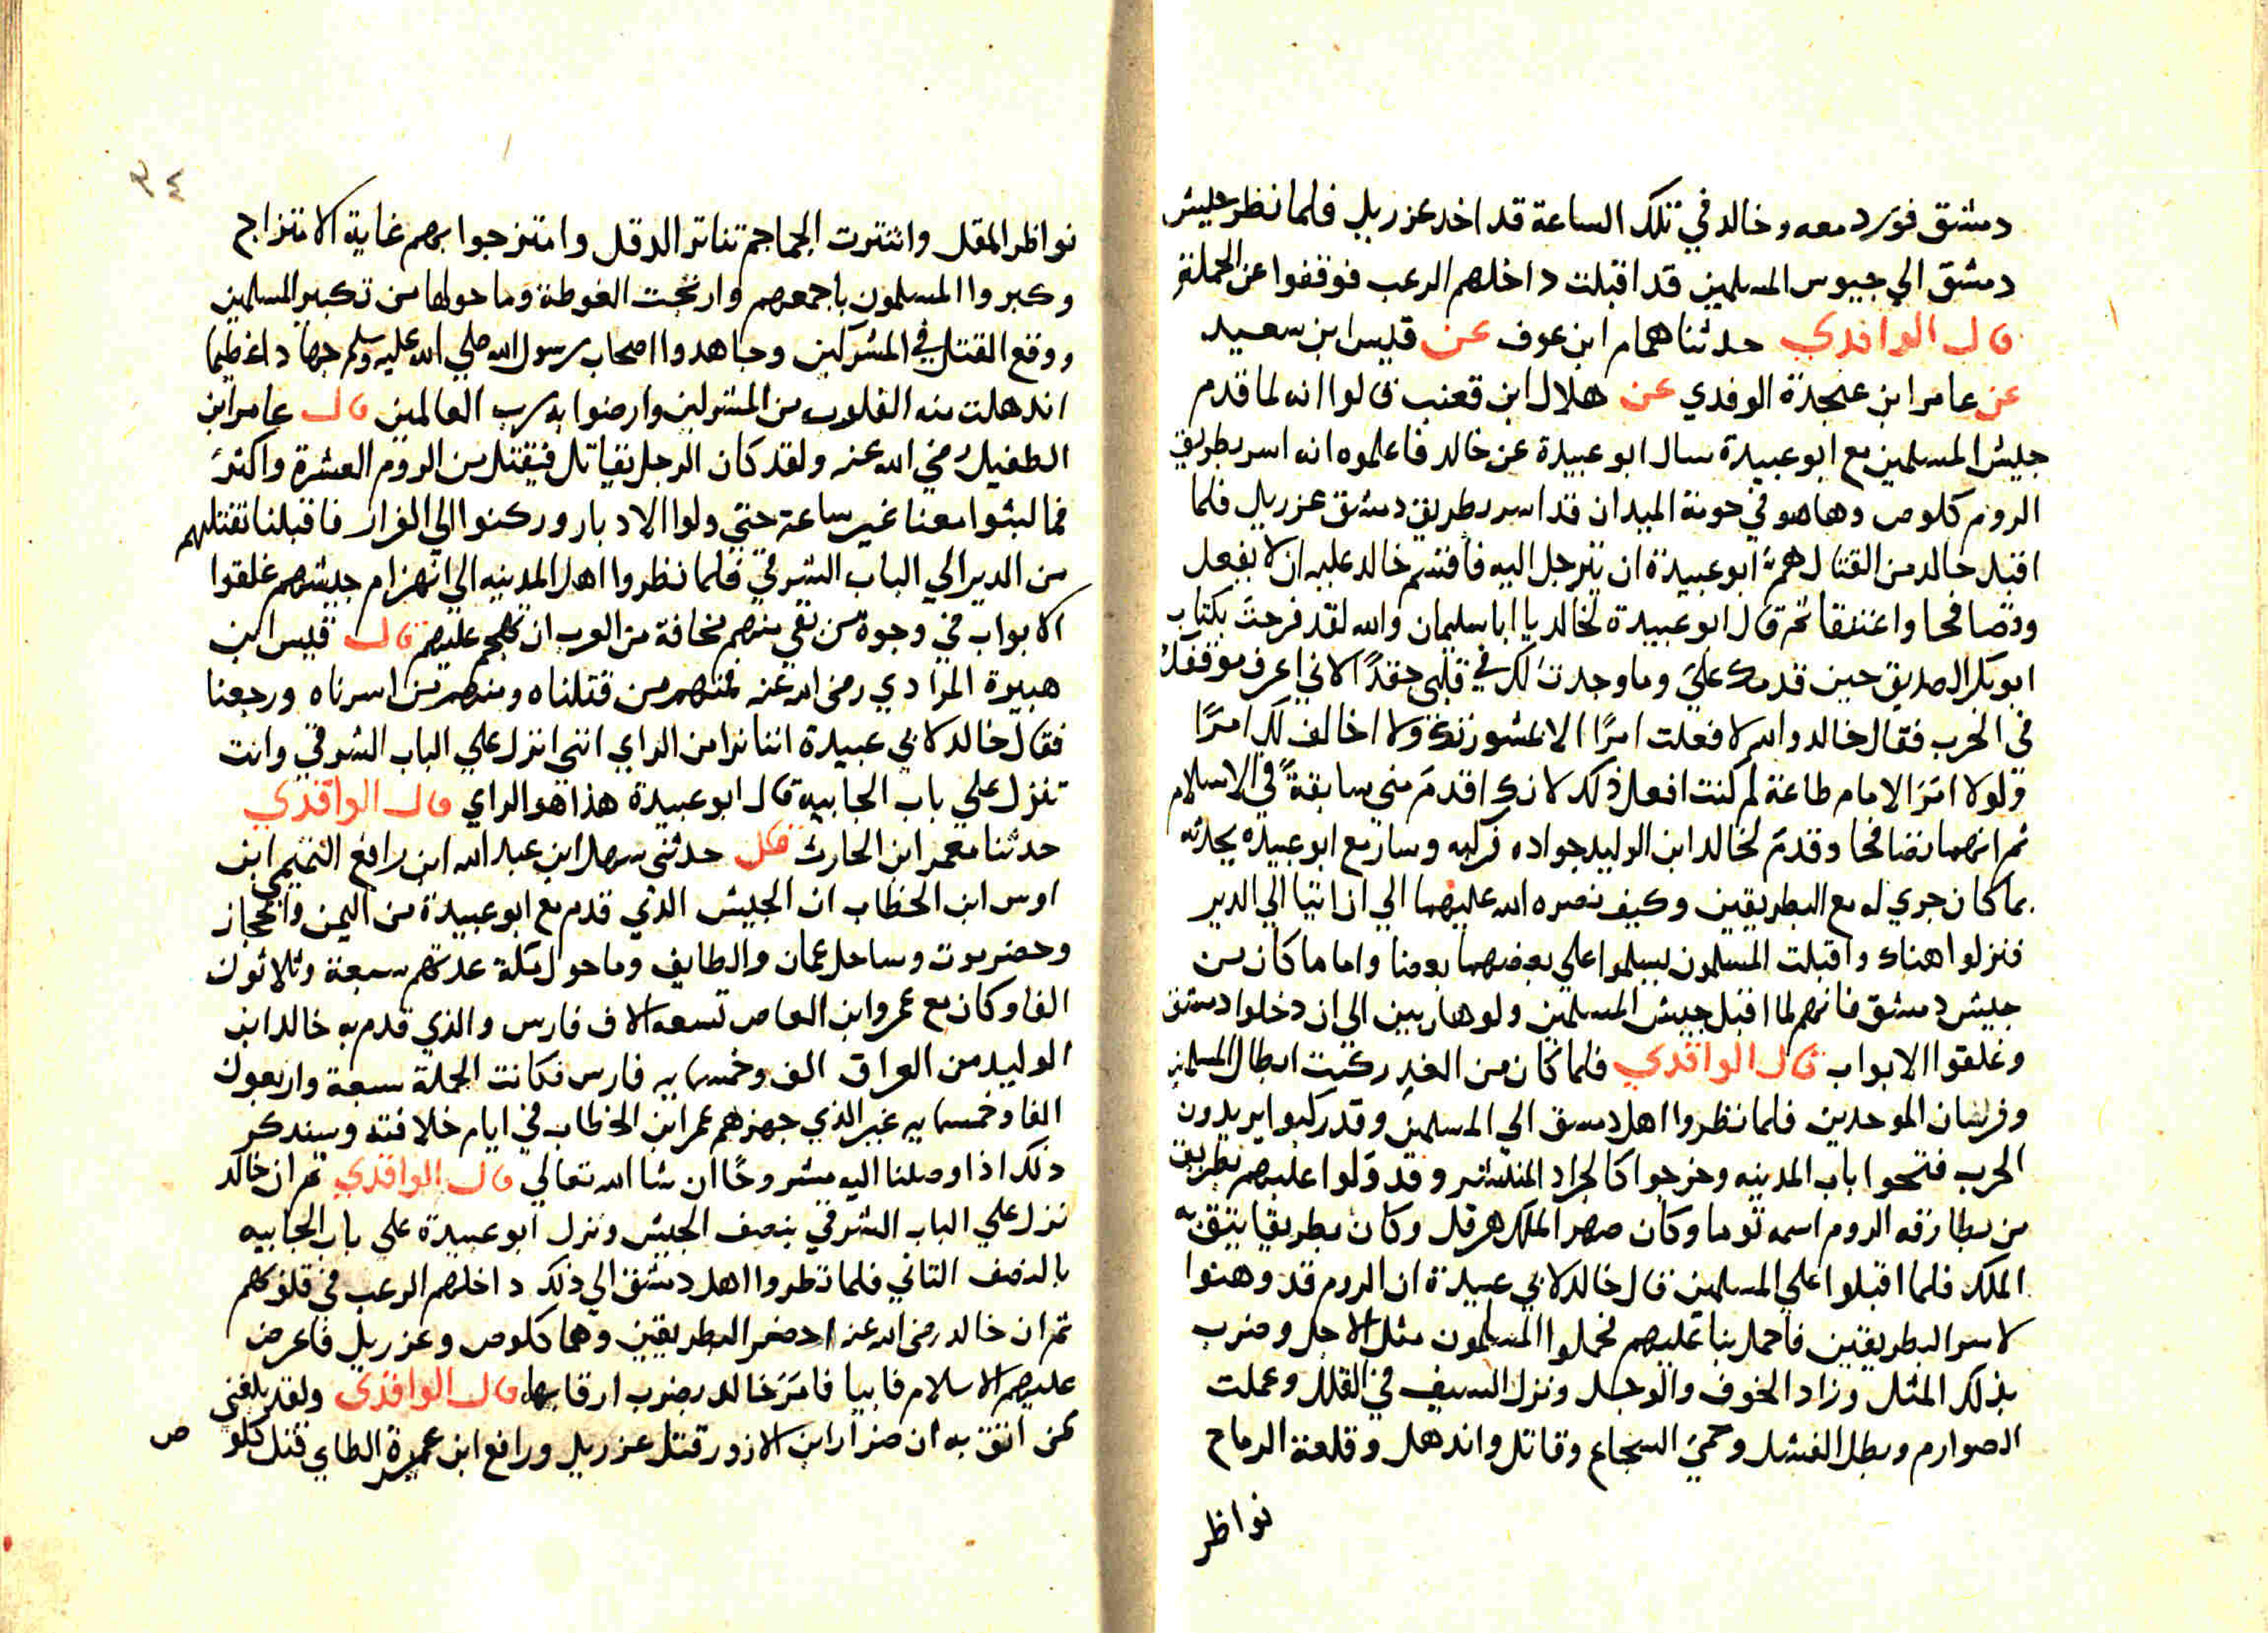 دمشق فورد معه وخالد في تلك الساعة قد اخد عزرييل فلما نظر جيش
دمشق الي جيوس المسلمين قد اقبلت داخلهم الرعب فوقفوا عن الحملة
قال الواقدي حدثنا همام ابن عوف عن قيس ابن سعيد
عن عامر ابن عنجدة الوفدي عن هلال ابن قعنب قالوا انه لما قدم
جيش المسلمين مع ابو عبيدة سال ابو عبيدة عن خالد فاعلموه انه اسر بطريق
الروم كلوص وها هو في حومة الميدان قد اسر بطريق دمشق عزرييل فلما
اقبل خالد من القتال هم ابو عبيدة ان يترجل اليه فاقسم خالد عليه ان لا يفعل
وتصافحا واعتنقا تم قال ابو عبيدة لخالد يا ابا سليمان والله لقد فرحت بكتاب
ابو بكر الصديق حين قدمك علي وما وجدت لك في قلبي حقدًا لاني اعرف موقفك
في الحرب فقال خالد والله لا فعلت امرًا الا بمشورتك ولا اخالف لك امرًا
ولولا امر الامام طاعة لم كنت افعل ذلك لانك اقدم مني سابقة في الاسلام
ثم انهما تصافحا وقدم لخالد ابن الوليد جواده فركبه وسار مع ابو عبيدة يحدثه
بما كان جري له مع البطريقين وكيف نصره الله عليهما الي ان اتيا الي الدير
فنزلوا هناك واقبلت المسلمون يسلموا علي بعضهما بعضا واما ما كان من
جيش دمشق فانهم لما اقبل جيش المسلمين ولو هاربين الي ان دخلوا دمشق
وغلقوا الابواب قال الواقدي فلما كان من الغد ركبت ابطال المسلمين
وفرسان الموحدين فلما نظروا اهل دمسق الي المسلمين وقد ركبوا يريدون
الحرب فتحوا باب المدينه وخرجوا كالجراد المنتشر وقد ولوا عليهم بطريق
من بطارقه الروم اسمه توما وكان صهر الملك هرقل وكان بطريقا يتق به
الملك فلما اقبلوا علي المسلمين قال خالد لابي عبيدة ان الروم قد وهنوا
لاسر البطريقين فاحمل بنا عليهم فحملوا المسلمون مثل الاجل وضرب
بذلك المثل وزاد الخوف والوجل ونزل السيف في القلل وعملت
الصوارم وبطل الفشل وحمي الشجاع وقاتل واندهل وقلعة الرماح
نواظر
٣٤
نواظر المقل وانتترت الجماجم تناتر الدقل وامتزجوا بهم غاية الامتزاج
وكبروا المسلمون باجمعهم وارتجت الغوطة وما حولها من تكبير المسلمين
ووقع القتل في المشركين وجاهدوا اصحاب رسول الله صلي الله عليه وسلم جهادا عظيما
اندهلت منه القلوب من المشركين وارضوا به رب العالمين قال عامر ابن
الطفيل رضي الله عنه ولقد كان الرجل يقاتل فيقتل من الروم العشرة واكثر
فما لبثوا معنا غير ساعة حتي ولوا الادبار وركنوا الي الفرار فاقبلنا نقتلهم
من الدير الي الباب الشرقي فلما نظروا اهل المدينه الي انهزام جيشهم غلقوا
الابواب في وجوة من بقي منهم مخافة من العرب ان تهجم عليهم قال قيس ابن
هبيرة المرادي رضي الله عنه فمنهم من قتلناه ومنهم من اسرناه ورجعنا
فقال خالد لابي عبيدة اننا نرا من الراي انني انزل علي الباب الشرقي وانت
تنزل علي باب الجابيه قال ابو عبيدة هذا هو الراي قال الواقدي
حدثنا معمر ابن الحارث قال حدثني سهل ابن عبد الله ابن رافع التميمي ابن
اوس ابن الخطاب ان الجيش الذي قدم مع ابو عبيدة من اليمن والحجاز
وحضرموت وساحل عمان والطايف وما حول مكة عدتهم سبعة وثلاثون
الفا وكان مع عمرو ابن العاص تسعه الاف فارس والذي قدم به خالد ابن
الوليد من العراق الف وخمسمايه فارس فكانت الجملة سبعة واربعون
الفا وخمسمايه غير الذي جهزهم عمر ابن الخطاب في ايام خلافته وسيذكر
ذلك اذا وصلنا اليه مشروحًا ان شا الله تعالي قال الواقدي تم ان خالد
نزل علي الباب الشرقي بنصف الجيش ونزل ابو عبيدة علي باب الجابيه
بالنصف التاني فلما نظروا اهل دمشق الي ذلك داخلهم الرعب في قلوبهم
تم ان خالد رضي الله عنه احضر البطريقين وهما كلوص وعزرييل فاعرض
عليهم الاسلام فابيا فامر خالد بضرب ارقابها قال الواقدي ولقد بلغني
عن اتق به ان ضرار ابن الازور قتل عزرييل ورافع ابن عميرة الطاي قتل كلوص